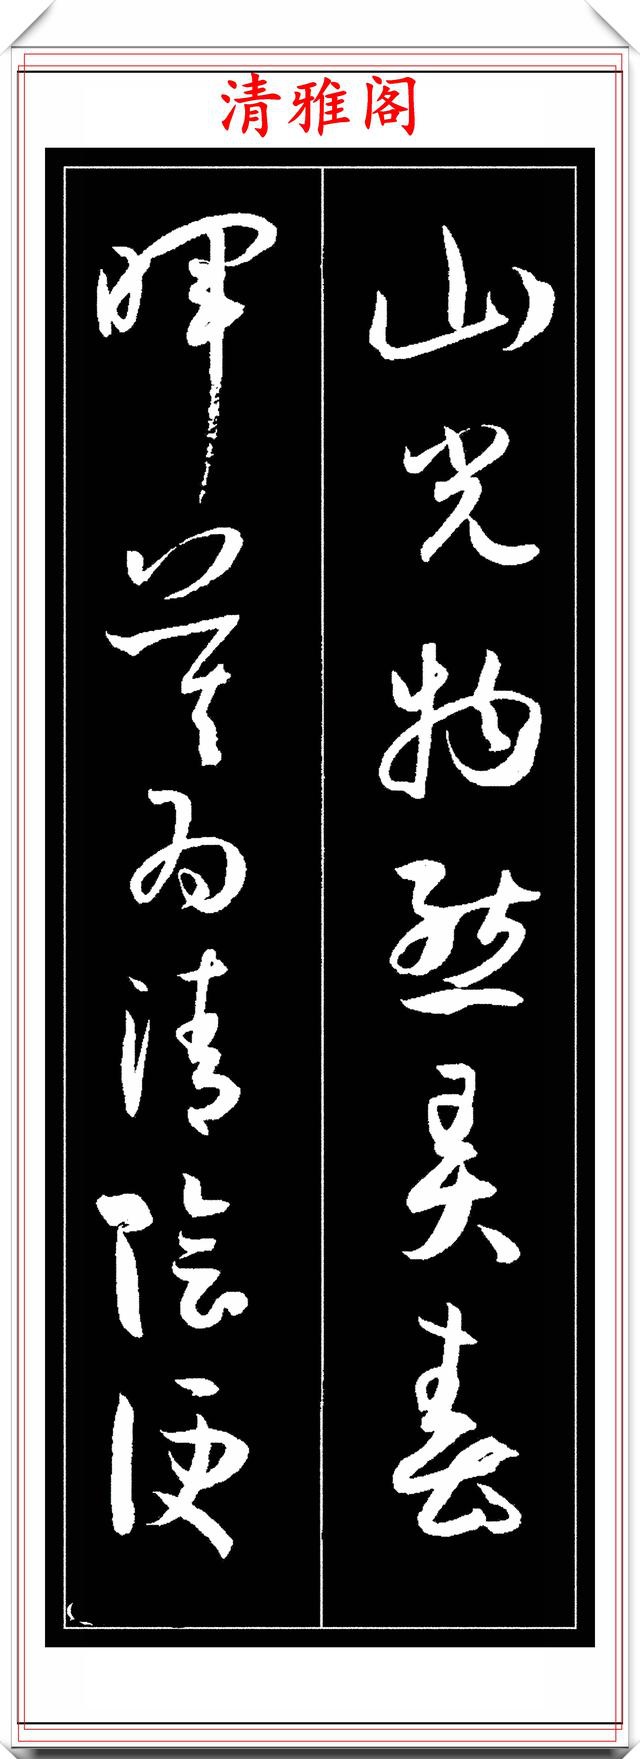 清雅阁
山光物態弄春
暉莫為清陰便